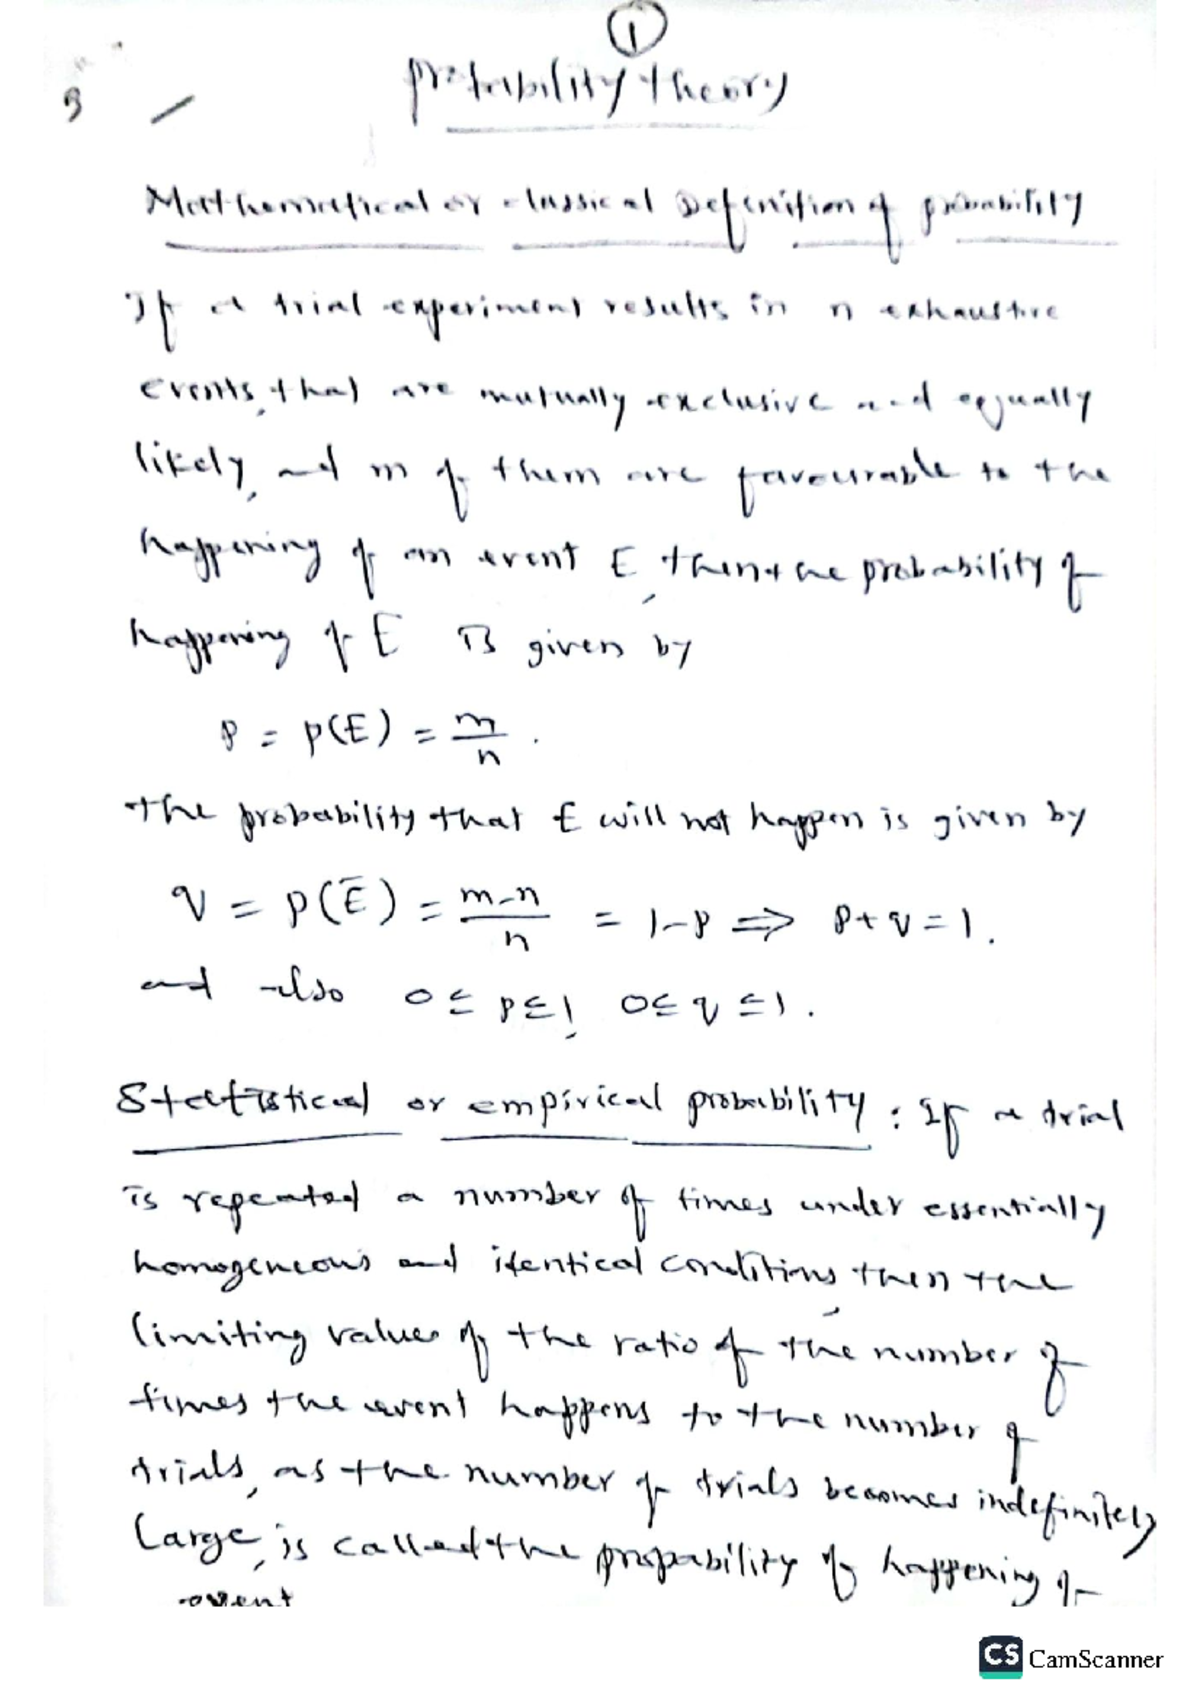 1
probability theory
Mathematical or classical Definition of probability
If a trial experiment results in n exhaustive
events, that are mutually exclusive and equally
likely, and m of them are favourable to the
happening of an event E, then the probability of
happening of E is given by
P = P(E) = m/n .
the probability that E will not happen is given by
q = P(Ē) = m-n/n = 1-P ⇒ P+q=1.
and also 0 ≤ p ≤ 1, 0 ≤ q ≤ 1.
Statistical or empirical probability : If a trial
is repeated a number of times under essentially
homogeneous and identical conditions, then the
limiting value of the ratio of the number of
times the event happens to the number of
trials, as the number of trials becomes indefinitely
large, is called the propability of happening of
event
CS CamScanner